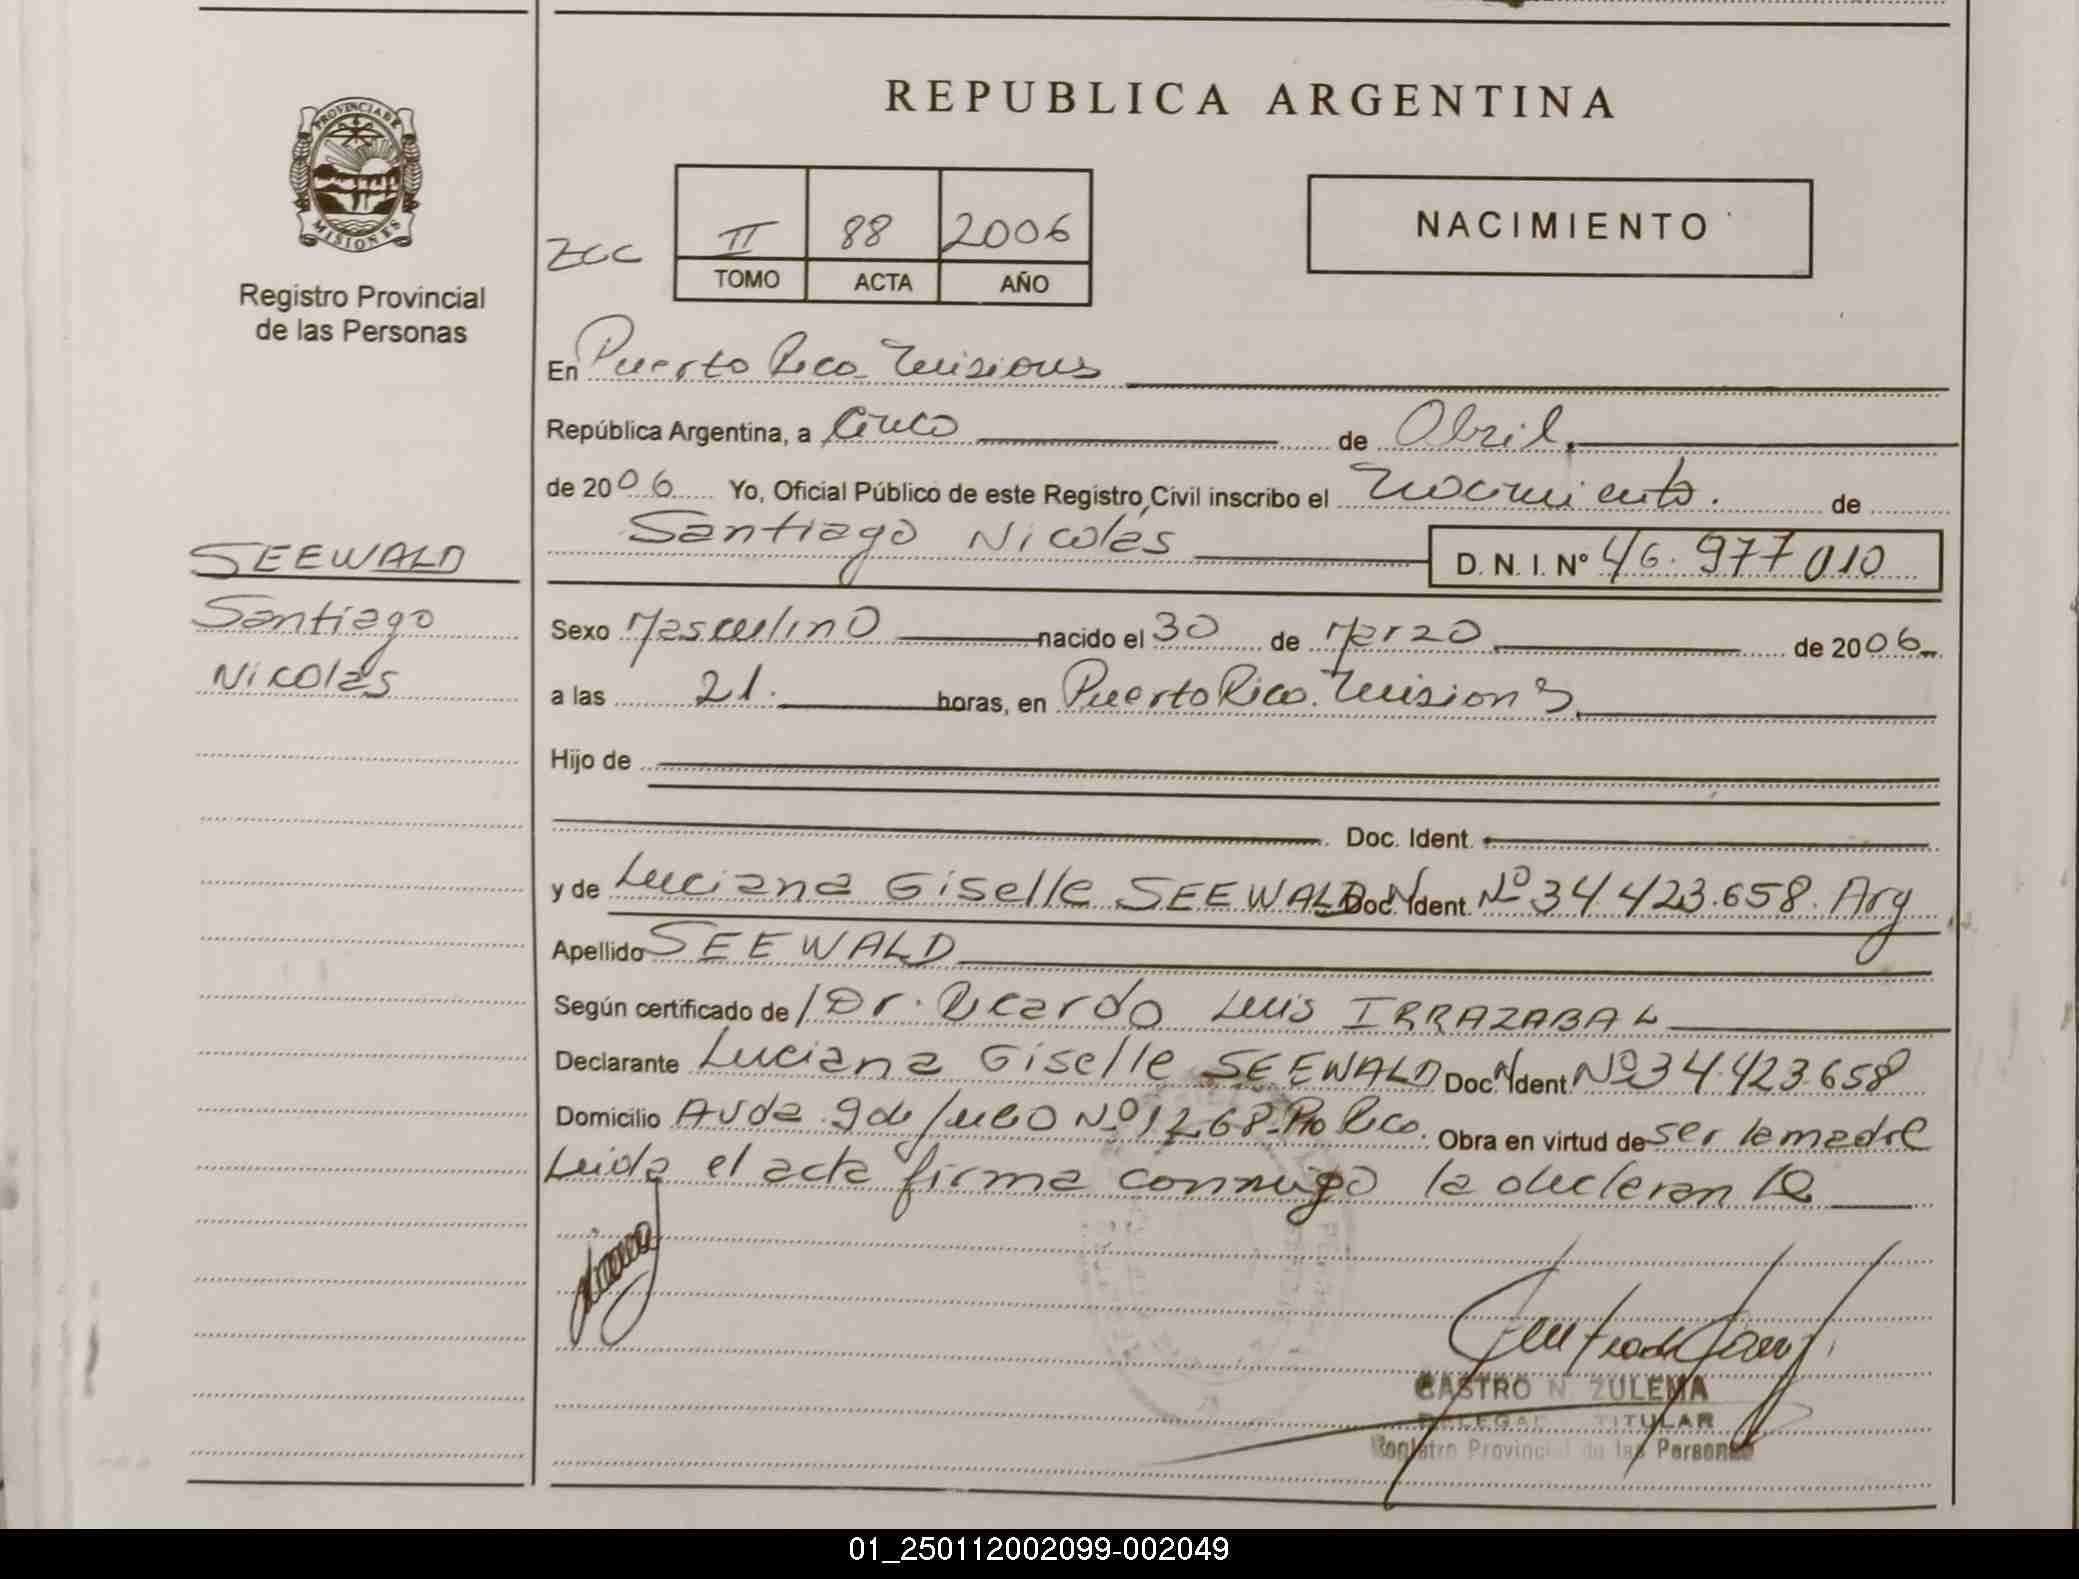 REPUBLICA ARGENTINA
PROVINCIA DE
MISIONES
Registro Provincial
de las Personas
II 88 2006
TOMO ACTA AÑO
NACIMIENTO
En Puerto Rico - Misiones
República Argentina, a Cinco de Abril
de 2006 Yo, Oficial Público de este Registro Civil inscribo el Nacimiento. de
Santiago Nicolás
D. N. I. Nº 46.977010
SEEWALD
Santiago
Nicolás
Sexo Masculino nacido el 30 de Marzo de 2006
a las 21. horas, en Puerto Rico. Misiones
Hijo de
Doc. Ident.
y de Luciana Giselle SEEWALD Doc. Ident. Nº 34.423.658. Arg
Apellido SEEWALD
Según certificado de Dr. Ricardo Luis IRRAZABAL
Declarante Luciana Giselle SEEWALD Doc. Ident. Nº 34.423.658
Domicilio Avda. 9 de Julio Nº 1268-Pto Rico. Obra en virtud de ser la madre
Leida el acta firma conmigo la declarante
CASTRO N. ZULEMA
DELEGADA TITULAR
Registro Provincial de las Personas
01_250112002099-002049